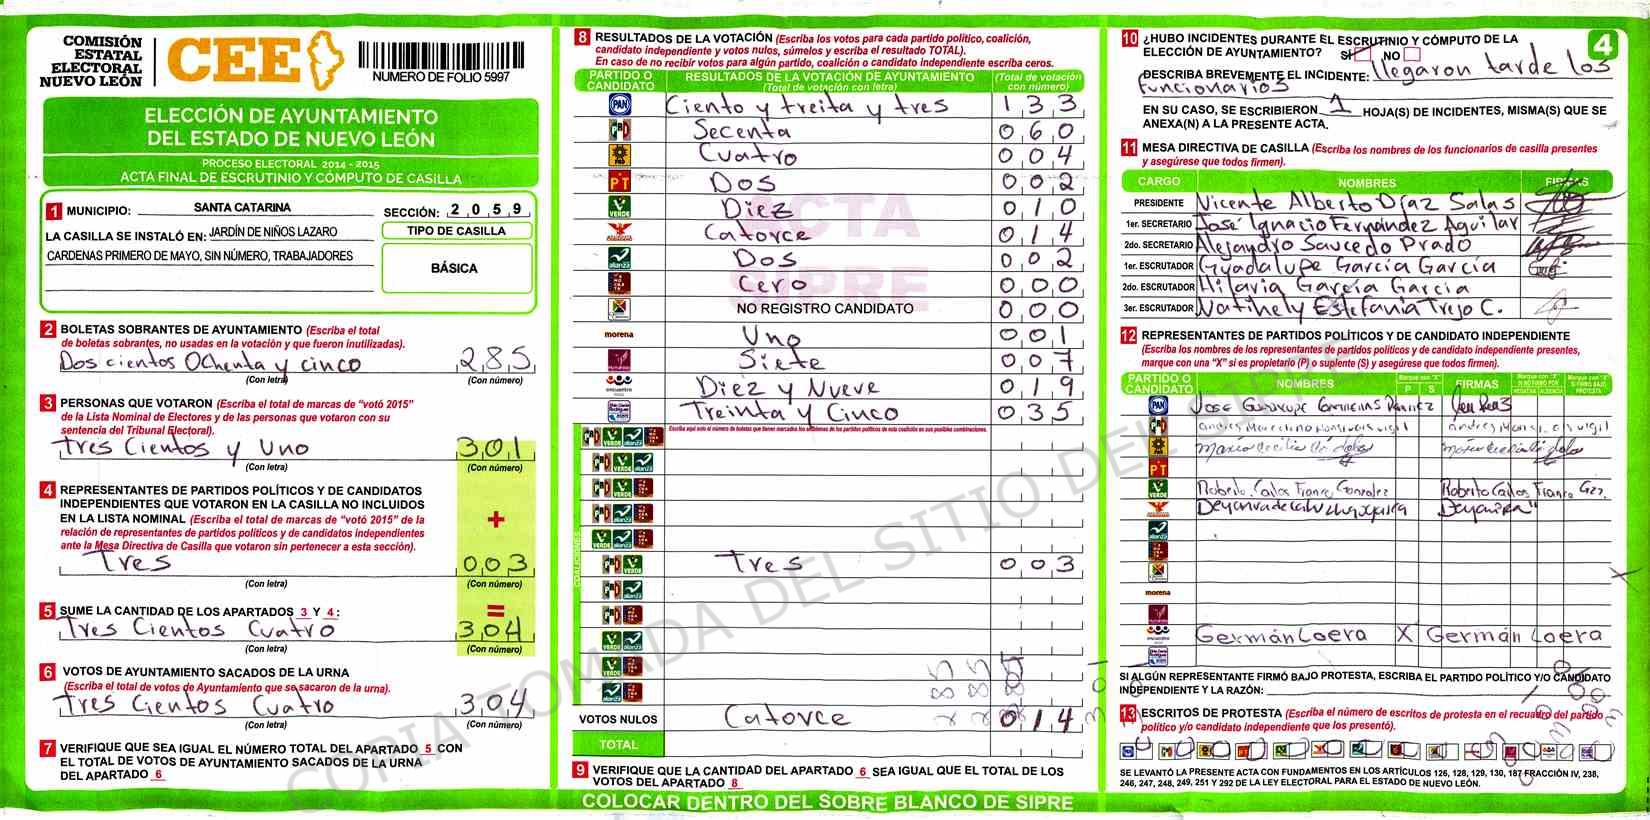 COMISIÓN
ESTATAL
ELECTORAL
NUEVO LEÓN
CEE
NUMERO DE FOLIO 5997
ELECCIÓN DE AYUNTAMIENTO
DEL ESTADO DE NUEVO LEÓN
PROCESO ELECTORAL 2014 - 2015
ACTA FINAL DE ESCRUTINIO Y CÓMPUTO DE CASILLA
1 MUNICIPIO: SANTA CATARINA SECCIÓN: 2 0 5 9
LA CASILLA SE INSTALÓ EN: JARDÍN DE NIÑOS LAZARO
CARDENAS PRIMERO DE MAYO, SIN NÚMERO, TRABAJADORES
TIPO DE CASILLA
BÁSICA
2 BOLETAS SOBRANTES DE AYUNTAMIENTO (Escriba el total
de boletas sobrantes, no usadas en la votación y que fueron inutilizadas).
Dos cientos Ochenta y cinco 2 8 5
(Con letra) (Con número)
3 PERSONAS QUE VOTARON (Escriba el total de marcas de "votó 2015"
de la Lista Nominal de Electores y de las personas que votaron con su
sentencia del Tribunal Electoral).
Tres Cientos y Uno 3 0 1
(Con letra) (Con número)
4 REPRESENTANTES DE PARTIDOS POLÍTICOS Y DE CANDIDATOS
INDEPENDIENTES QUE VOTARON EN LA CASILLA NO INCLUIDOS
EN LA LISTA NOMINAL (Escriba el total de marcas de "votó 2015" de la
relación de representantes de partidos políticos y de candidatos independientes
ante la Mesa Directiva de Casilla que votaron sin pertenecer a esta sección).
+
Tres 0 0 3
(Con letra) (Con número)
5 SUME LA CANTIDAD DE LOS APARTADOS 3 Y 4: =
Tres Cientos Cuatro 3 0 4
(Con letra) (Con número)
6 VOTOS DE AYUNTAMIENTO SACADOS DE LA URNA
(Escriba el total de votos de Ayuntamiento que se sacaron de la urna).
Tres Cientos Cuatro 3 0 4
(Con letra) (Con número)
7 VERIFIQUE QUE SEA IGUAL EL NÚMERO TOTAL DEL APARTADO 5 CON
EL TOTAL DE VOTOS DE AYUNTAMIENTO SACADOS DE LA URNA
DEL APARTADO 6
8 RESULTADOS DE LA VOTACIÓN (Escriba los votos para cada partido político, coalición,
candidato independiente y votos nulos, súmelos y escriba el resultado TOTAL).
En caso de no recibir votos para algún partido, coalición o candidato independiente escriba ceros.
PARTIDO O CANDIDATO RESULTADOS DE LA VOTACIÓN DE AYUNTAMIENTO (Total de votación con letra) (Total de votación con número)
PAN Ciento y treita y tres 1 3 3
PRI Secenta 0 6 0
PRD Cuatro 0 0 4
PT Dos 0 0 2
VERDE Diez 0 1 0
Catorce 0 1 4
alianza Dos 0 0 2
Cero 0 0 0
NO REGISTRO CANDIDATO 0 0 0
morena Uno 0 0 1
Siete 0 0 7
encuentro Diez y Nueve 0 1 9
Treinta y Cinco 0 3 5
COALICIONES
Tres 0 0 3
VOTOS NULOS Catorce 0 1 4
TOTAL
9 VERIFIQUE QUE LA CANTIDAD DEL APARTADO 6 SEA IGUAL QUE EL TOTAL DE LOS
VOTOS DEL APARTADO 8
COLOCAR DENTRO DEL SOBRE BLANCO DE SIPRE
ACTA
SIPRE
COPIA TOMADA DEL SITIO DEL SIPRE
10 ¿HUBO INCIDENTES DURANTE EL ESCRUTINIO Y CÓMPUTO DE LA
ELECCIÓN DE AYUNTAMIENTO? SÍ NO
4
DESCRIBA BREVEMENTE EL INCIDENTE: llegaron tarde los
funcionarios
EN SU CASO, SE ESCRIBIERON 1 HOJA(S) DE INCIDENTES, MISMA(S) QUE SE
ANEXA(N) A LA PRESENTE ACTA.
11 MESA DIRECTIVA DE CASILLA (Escriba los nombres de los funcionarios de casilla presentes
y asegúrese que todos firmen).
CARGO NOMBRES FIRMAS
PRESIDENTE Vicente Alberto Díaz Salas
1er. SECRETARIO José Ignacio Fernández Aguilar
2do. SECRETARIO Alejandro Saucedo Prado
1er. ESCRUTADOR Guadalupe García García
2do. ESCRUTADOR Hilaria García García
3er. ESCRUTADOR Natihely Estefania Trejo C.
12 REPRESENTANTES DE PARTIDOS POLÍTICOS Y DE CANDIDATO INDEPENDIENTE
(Escriba los nombres de los representantes de partidos políticos y de candidato independiente presentes,
marque con una "X" si es propietario (P) o suplente (S) y asegúrese que todos firmen).
PARTIDO O CANDIDATO NOMBRES P S FIRMAS
PAN JOSE GUADALUPE
PRD
PT
VERDE Roberto Carlos Franco Gonzalez Roberto Carlos Franco Gzz.
morena
encuentro Germán Loera X Germán Loera
SI ALGÚN REPRESENTANTE FIRMÓ BAJO PROTESTA, ESCRIBA EL PARTIDO POLÍTICO Y/O CANDIDATO
INDEPENDIENTE Y LA RAZÓN:
13 ESCRITOS DE PROTESTA (Escriba el número de escritos de protesta en el recuadro del partido
político y/o candidato independiente que los presentó).
SE LEVANTÓ LA PRESENTE ACTA CON FUNDAMENTOS EN LOS ARTÍCULOS 126, 128, 129, 130, 187 FRACCIÓN IV, 238,
246, 247, 248, 249, 251 Y 292 DE LA LEY ELECTORAL PARA EL ESTADO DE NUEVO LEÓN.